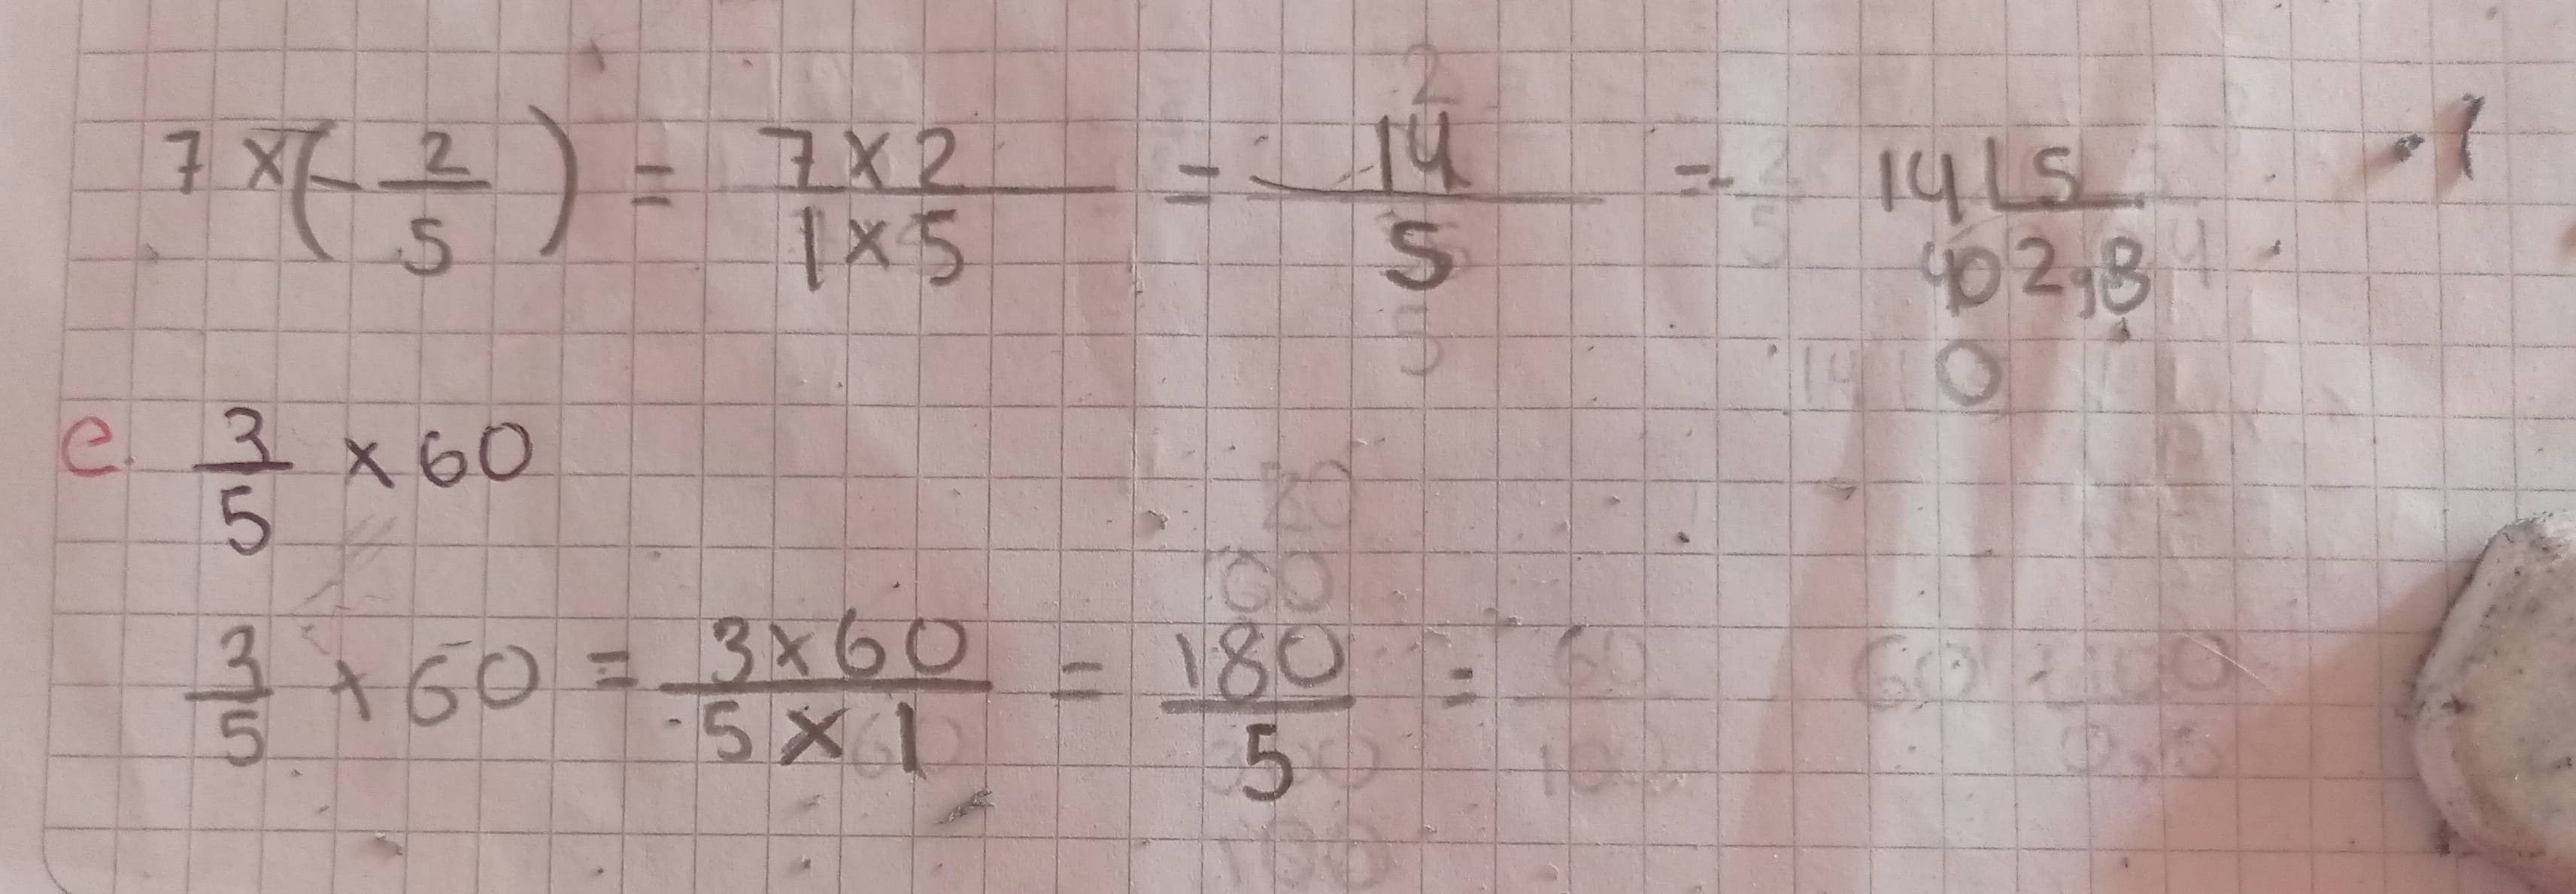 7 x (- 2/5) = 7 x 2 / 1 x 5 = 14/5 = 14 | 5
40 2,8
0
e. 3/5 x 60
3/5 x 60 = 3 x 60 / 5 x 1 = 180/5 =